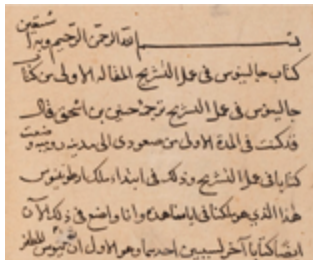 بسم الله الرحمن الرحيم وبه نستعين
كتاب جالينوس في عمل التشريح المقالة الاولى من كتاب
جالينوس في عمل التشريح ترجمة حنين بن اسحق قال
قد كنت في المدة الاولى من صعودي الى مدينة رومية وضعت
كتابا في عمل التشريح وذلك في ابتداء ملك انطونينوس
هذا الذي هو ملكنا في ايامنا هذه وانا واضع في ذلك الآن
ايضا كتابا آخر لسببين احدهما وهو الاول ان